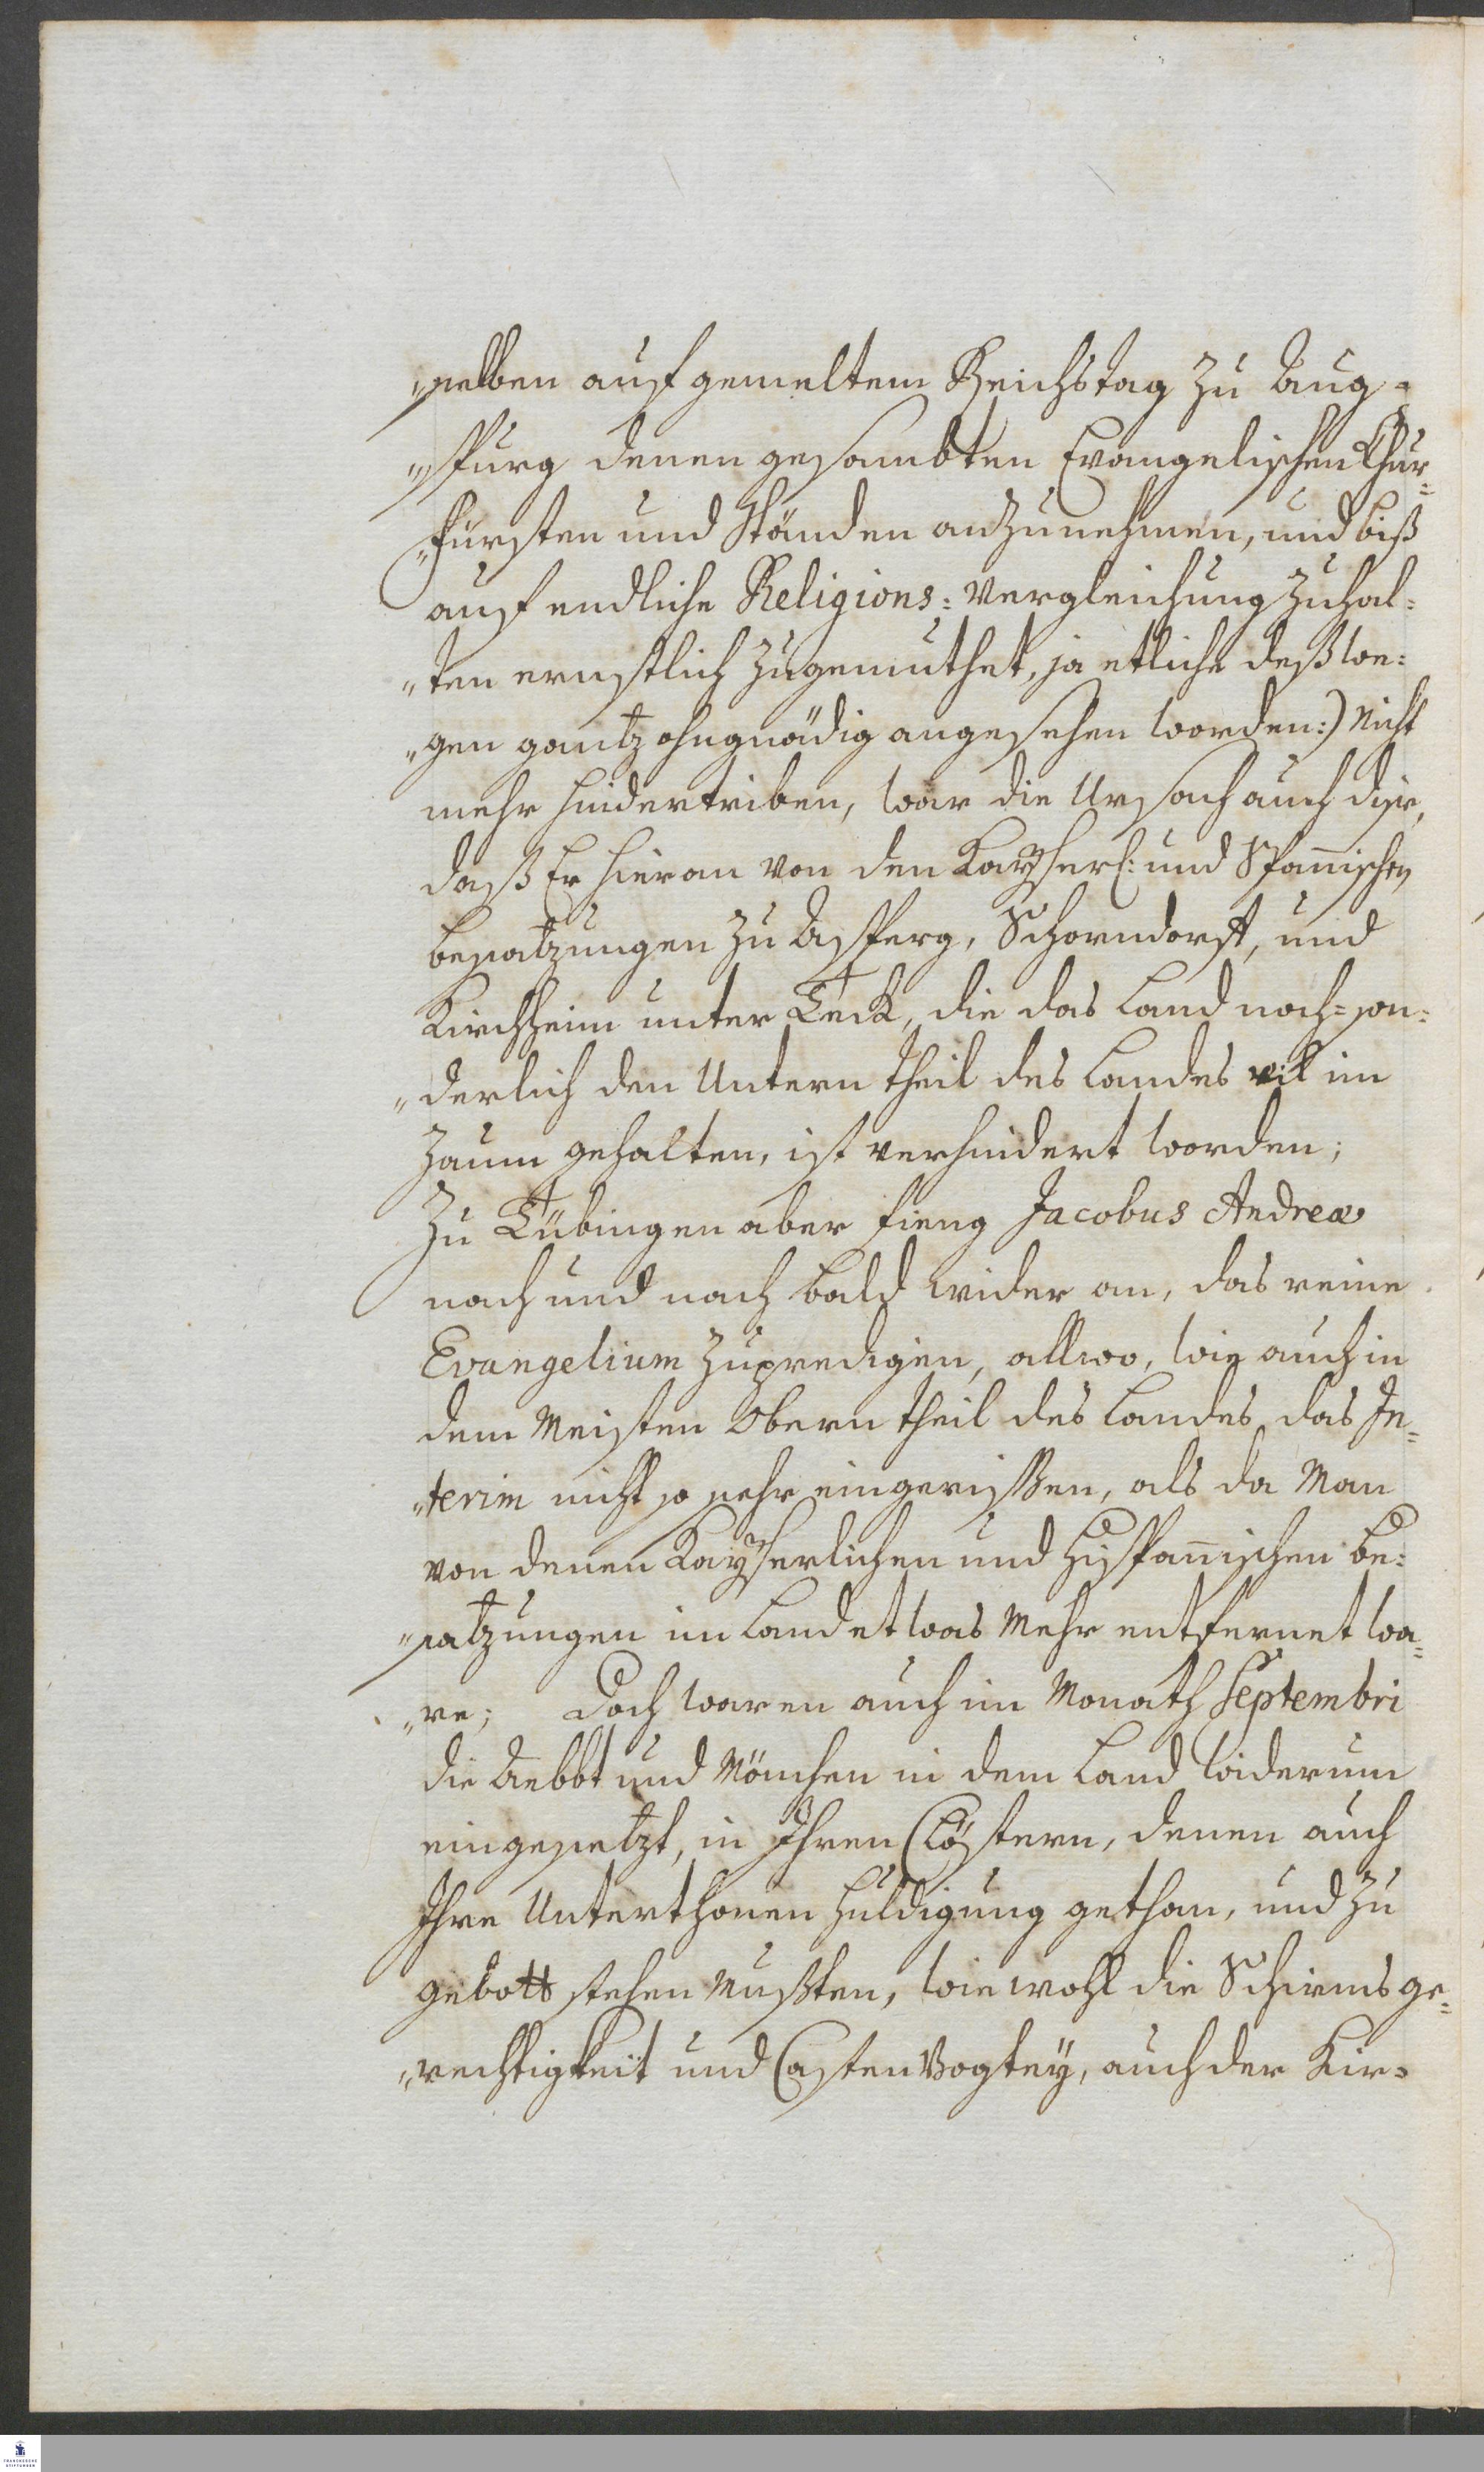 „selben auf gemeltem Reichstag zu Aug-
„spurg denen gesambten Evangelischen Chur-
„Fürsten und Ständen anzunehmen, und biß
auf endliche Religions-Vergleichung zuhal-
„ten ernstlich zugemuthet, ja etliche deßwe-
„gen gantz ohngnädig angesehen worden:) nicht
mehr hindertriben, war die Ursach auch dise,
daß Er hieran von den Kayserl: und Spanischen
besatzungen zu Asperg, Schorndorff, und
Kirchheim unter Teck, die das Land noch-son-
„derlich den Untern theil des Landes vil im
Zaum gehalten, ist verhindert worden;
Zu Tübingen aber fieng Jacobus Andreæ
nach und nach bald wider an, das reine
Evangelium zupredigen, allwo, wie auch in
dem Meisten Obern theil des Landes, das In-
„terim nicht so sehr eingerißen, als da Man
von denen Kayserlichen und Hispanischen be-
„satzungen im Land etwas Mehr entfernet wa-
„re; Doch waren auch im Monath Septembri
die Aebbt und Mönchen in dem Land widerum
eingesetzt, in Ihren Clöstern, denen auch
Ihre Unterthonen Huldigung gethan, und zu
gebott stehen mußten, wiewohl die Schirmsge-
„rechtigkeit und Casten Vogtey, auch der Kir-
FRANCKESCHE
STIFTUNGEN